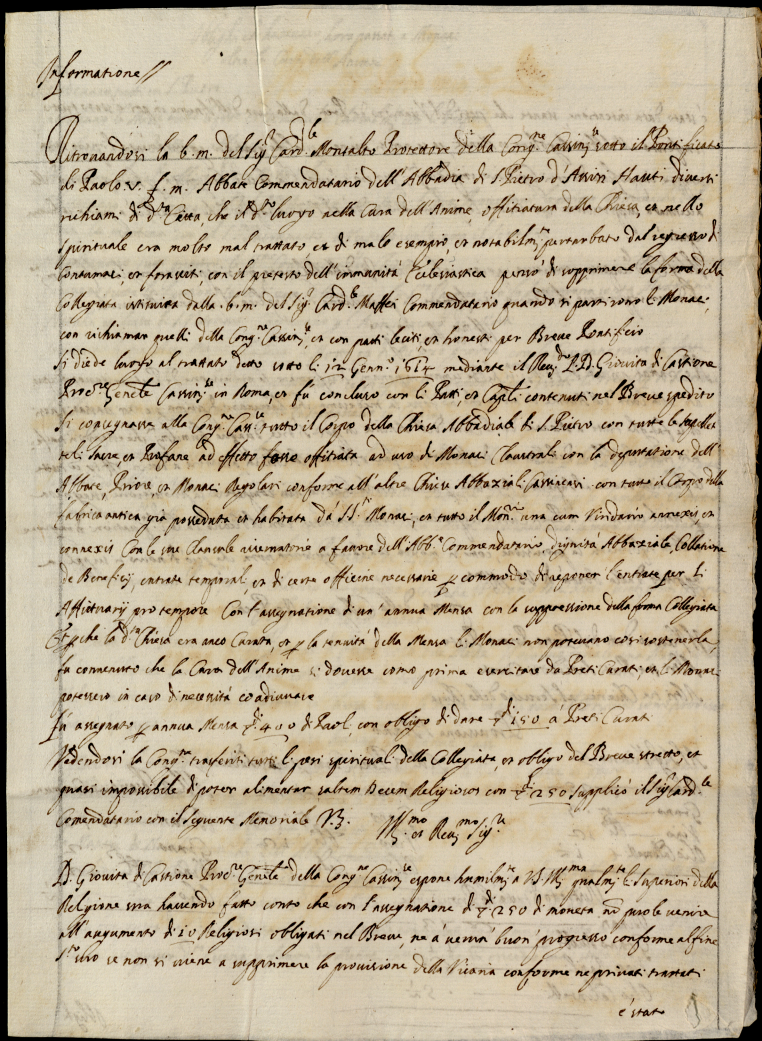 Informatione//
Ritrovandosi la b. m. del Sig.r Card.le Montalto Protettore della Cong.ne Cassin.se sotto il Pontificato
di Paolo V. f. m. Abbate Commendatario dell'Abbadia di S. Pietro d'Assisi Hauti diversi
richiami di d.ta Città che il d.o luogo nella Cura dell'Anime, offitiatura della Chiesa, et nello
spirituale era molto mal trattato et di malo esempio, et notabilm.te perturbato dal regresso di
Contumaci, et forusciti, con il pretesto dell'immunità Eclesiastica pensò di supprimere la forma della
Collegiata instituita dalla b. m. del Sig.r Card.le Maffei Commendatario quando si partirono li Monaci,
con richiamar quelli della Cong.ne Cassin.se, et con patti leciti et honesti per Breve Pontificio
Si diede luogo al trattato detto sotto li 12 Genn.o 1614 mediante il Reu.do P. D. Giovita di Castione
Proc.re Gen.le Cassin.se in Roma, et fù concluso con li Patti, et Cap.li contenuti nel Breve spedito
Si consegnasse alla Cong.ne Cass.se tutto il Corpo della Chiesa Abbadiale di S. Pietro con tutte le supellet
teli Sacre, et Profane ad effetto fosse offitiata ad uso di Monaci Claustrali con la deputatione dell'
Abbate, Priore, et Monaci Regolari conforme all'altre Chiese Abbaziali Cassinensi con tutto il Corpo della
fabrica antica già posseduta et habitata da SS.ri Monaci, et tutto il Mon.rio una cum Viridario annexis, et
connexis Con le sue Clausule riservatorie a favore dell'Abb.e Commendatario, dignità Abbaziale, Collatione
de Beneficij, entrate temporali, et di certe officine necessarie p commodo di reponer l'entrate per li
Affittuarij pro tempore Con l'assegnatione di un'annua Mensa con la suppressione della forma Collegiata
Et p che la d.a Chiesa era anco Curata, et p la tenuità della Mensa li Monaci non potevano così sostenerla,
fu convenuto che la Cura dell'Anime si dovesse como prima esercitare da Preti Curati, et li Monaci
potessero in caso di necessità coadiuvare
Fù assegnato p annua Mensa 400 di Paoli con obligo di dare 150 a Preti Curati
Vedendosi la Cong.ne trasferiti tutti li pesi spirituali della Collegiata, et obligo del Breve stretto, et
quasi impossibile di poter alimentar saltem Decem Religiosos con 250 supplicò il Sig.r Card.le
Comendatario con il seguente Memoriale V.z.
Ill.mo et Reu.mo Sig.re
D. Giovita di Castione Proc.re Gen.le della Cong.ne Cassin.se espone humilm.te a VS. Ill.ma qualm.te li Superiori della
Religione sua havendo fatto conto che con l'assegnatione di 250 di moneta no' puole venire
all'augumento di 10 Religiosi obligati nel Breve, ne à venir à buon progresso conforme al fine
se non si viene a supprimere la provisione della Vicaria conforme ne privati trattati
è stato